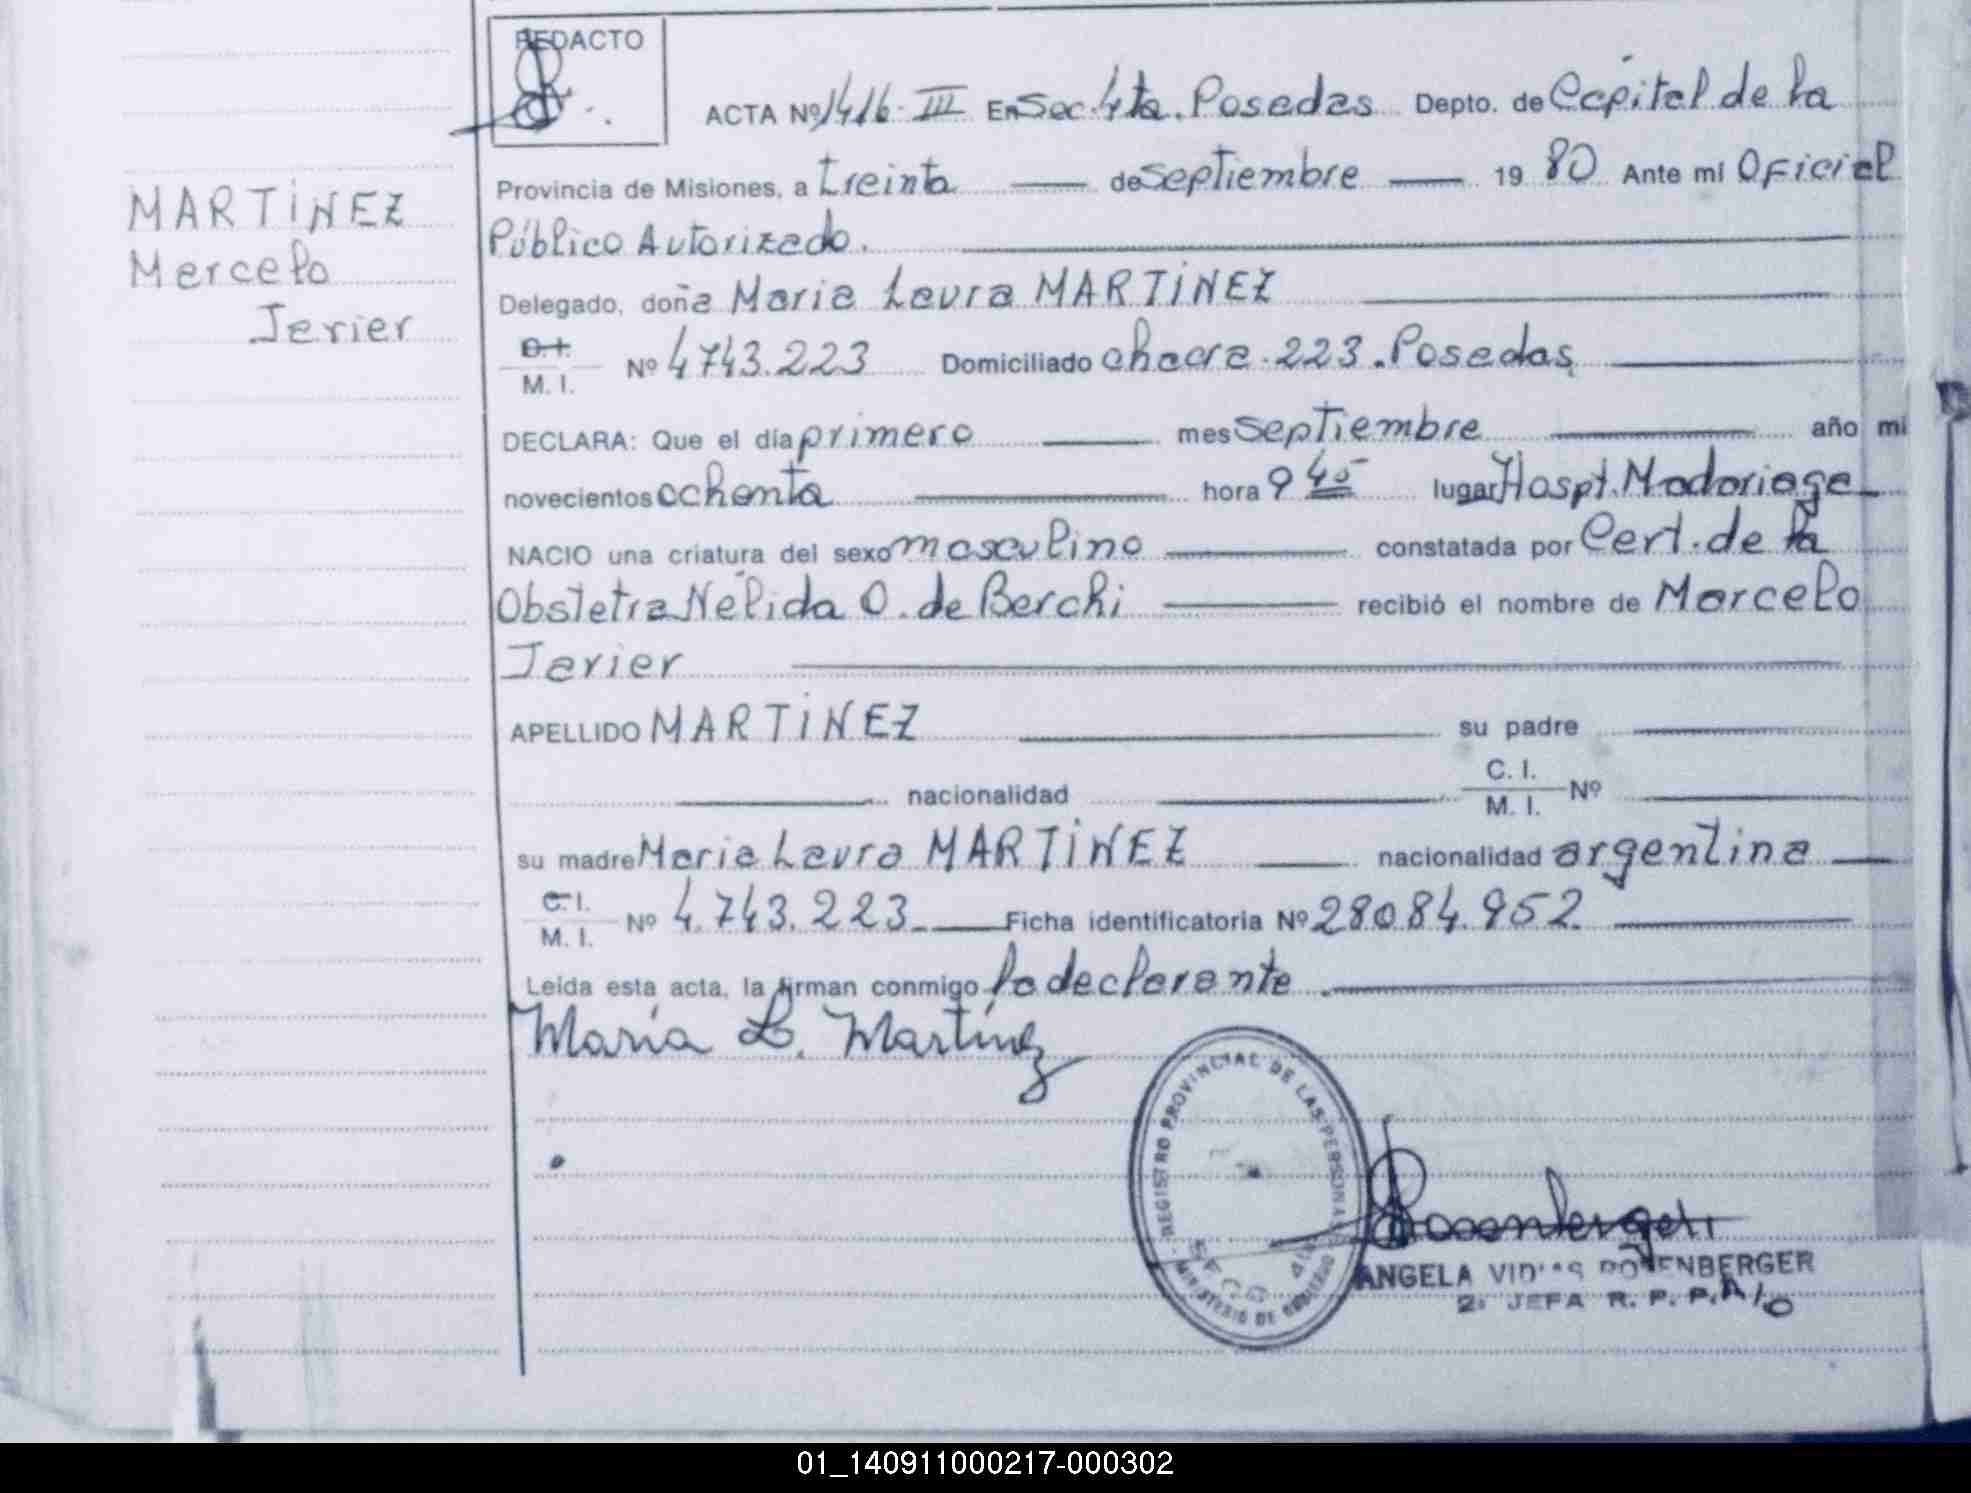 REDACTO
ACTA Nº 1416-III En Sec. 4ta. Posadas Depto. de Capital de la
Provincia de Misiones, a treinta de septiembre 19 80 Ante mi Oficial
Público Autorizado.
MARTINEZ
Marcelo
Javier
Delegado, doña Maria Laura MARTINEZ
M. I. Nº 4743.223 Domiciliado chacra 223. Posadas
DECLARA: Que el día primero mes septiembre año mi
novecientos ochenta hora 9 45 lugar Hospt. Madariaga
NACIO una criatura del sexo masculino constatada por Cert. de la
Obstetra Nélida O. de Berchi recibió el nombre de Marcelo
Javier
APELLIDO MARTINEZ su padre
nacionalidad C. I. M. I. Nº
su madre Maria Laura MARTINEZ nacionalidad argentina
C. I. M. I. Nº 4.743.223 Ficha identificatoria Nº 28084.952.
Leída esta acta, la firman conmigo la declarante.
María L. Martínez
REGISTRO PROVINCIAL DE LAS PERSONAS
MINISTERIO DE GOBIERNO
SECC 4ta
Rosenberger
ANGELA ROSENBERGER
2º JEFA R. P. P. A/c
01_140911000217-000302